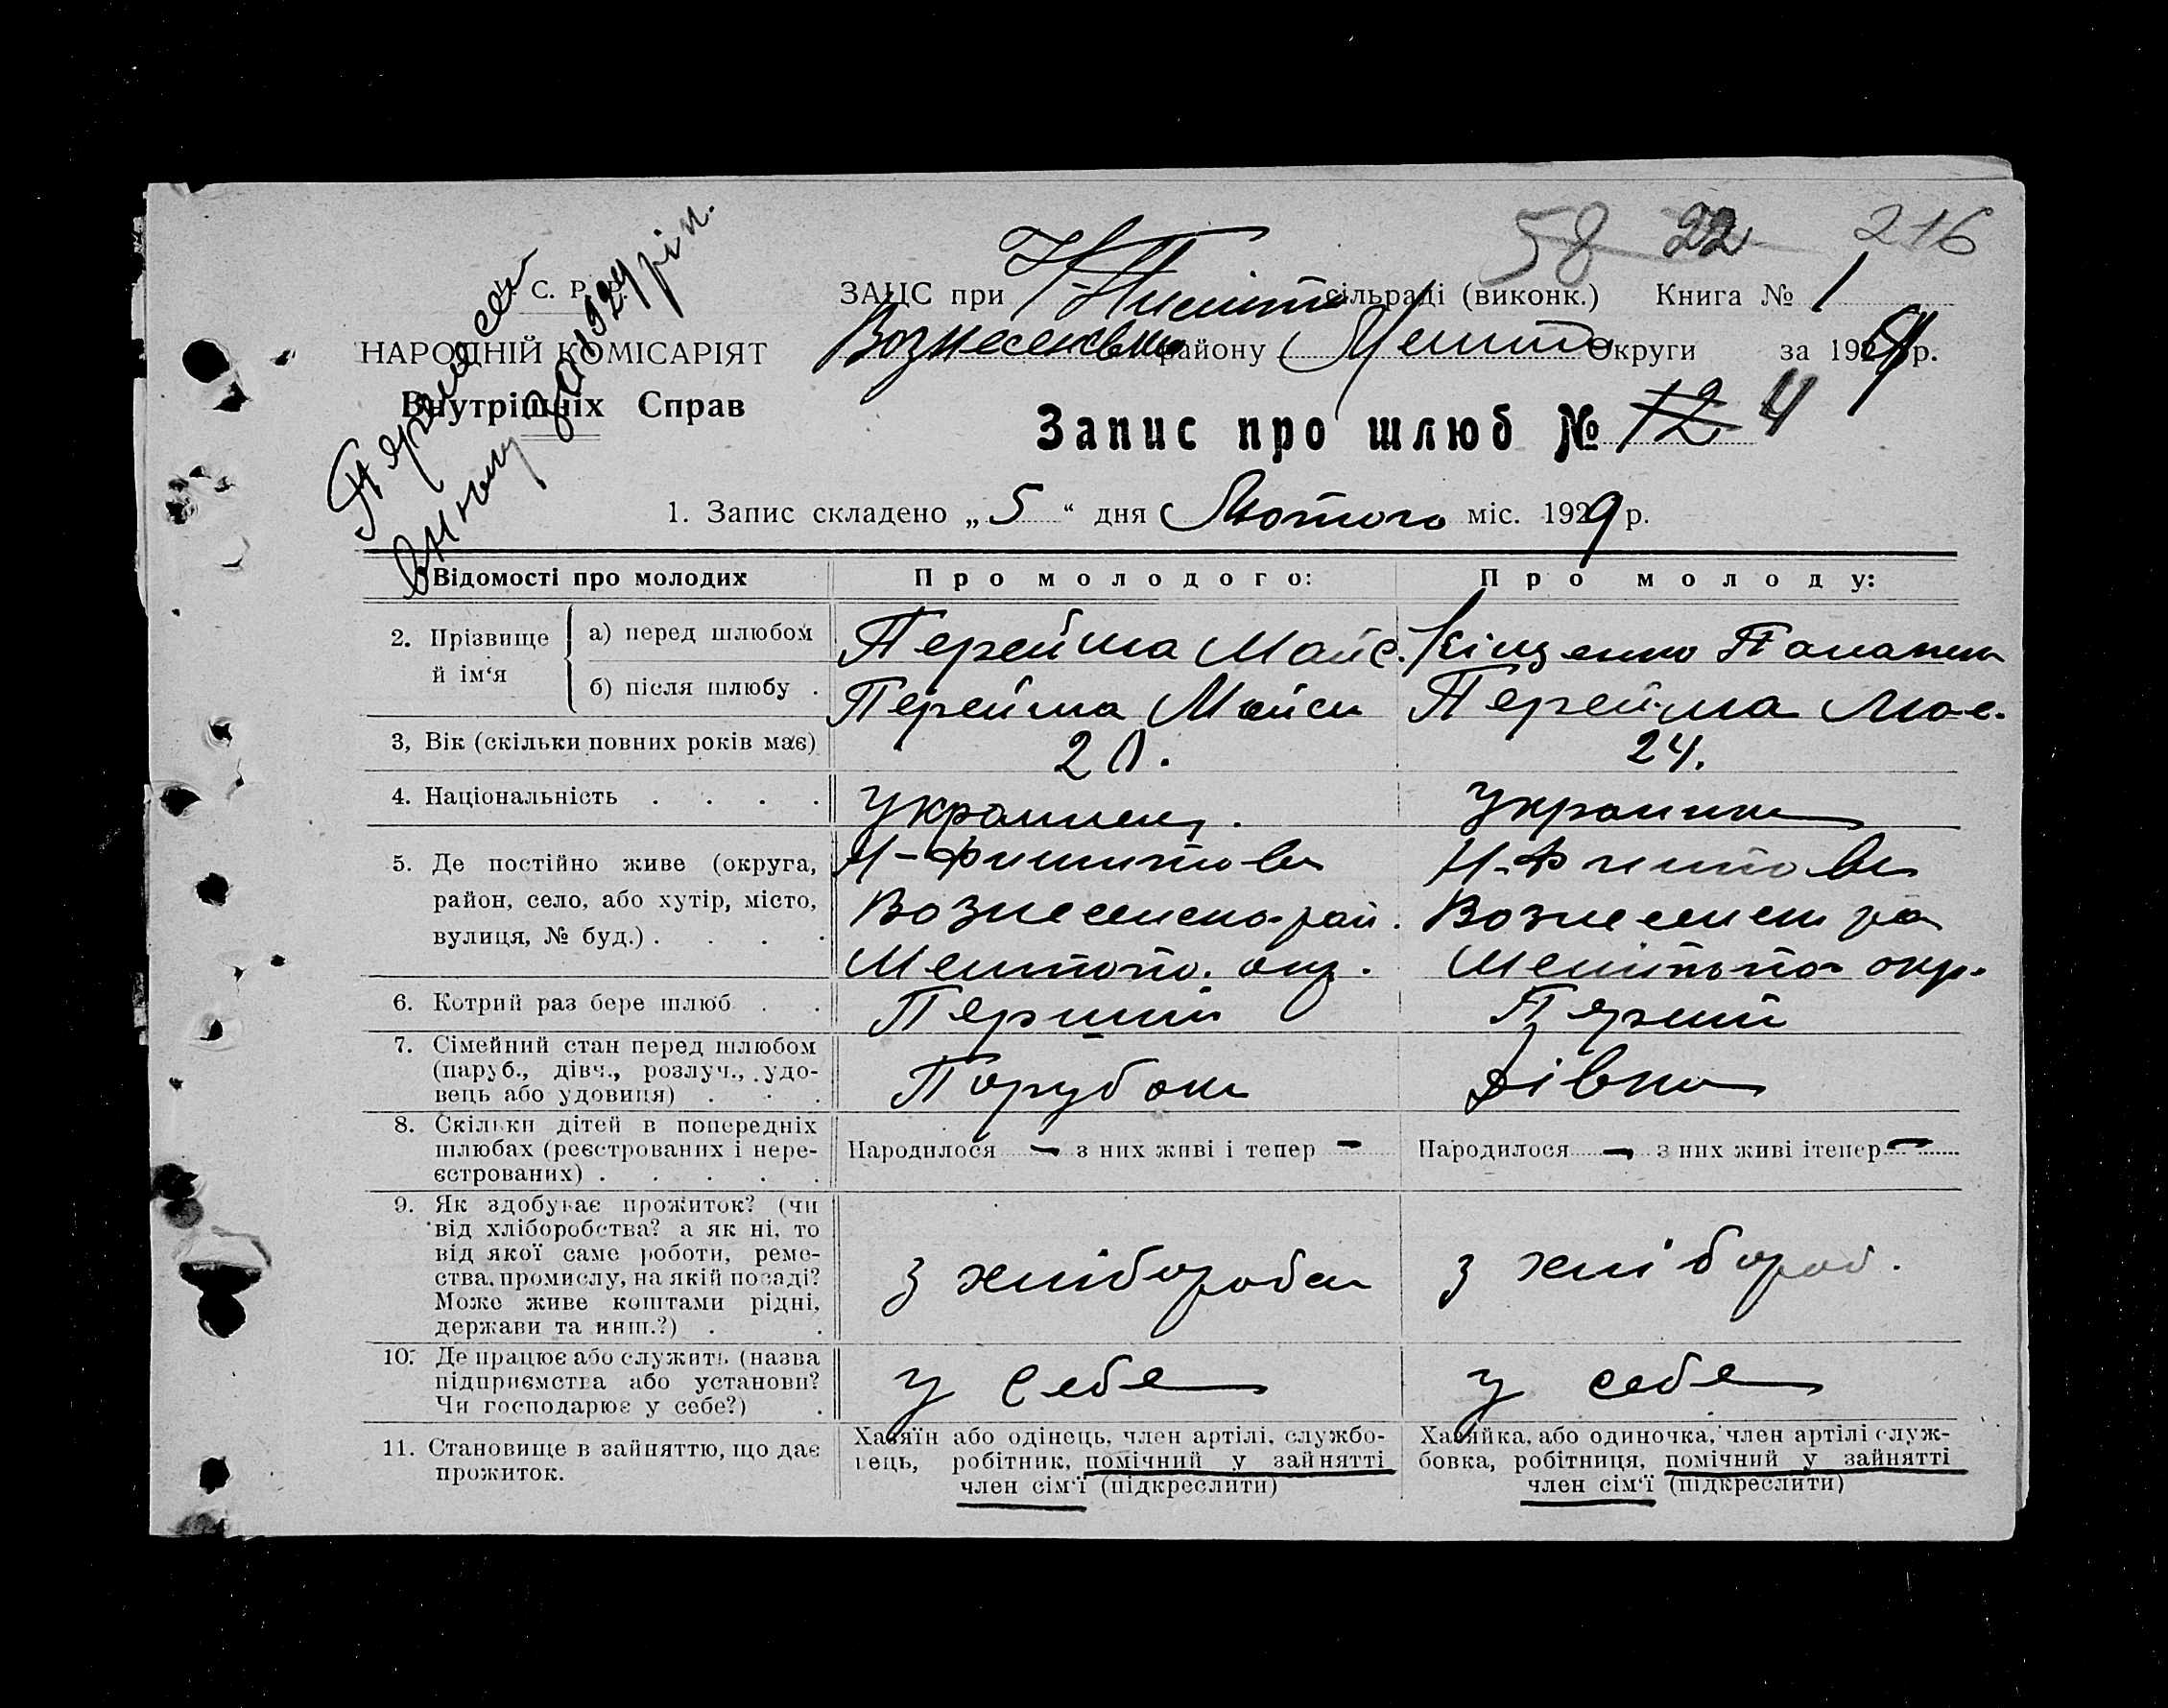 58 22 216
С. Р. Р.
ЗАЦС при сільраді (виконк.) Книга № 1
НАРОДНІЙ КОМІСАРІЯТ
Внутрішніх Справ
району Округи за 1929 р.
Запис про шлюб № 12 4
1. Запис складено „ 5 “ дня Лютого міс. 1929 р.
Відомості про молодих Про молодого: Про молоду:
2. Прізвище й ім‘я
а) перед шлюбом Перейма Мойс.
б) після шлюбу . Перейма Перейма
3, Вік (скільки повних років має) 20. 24.
4. Національність . . . . украинец.
5. Де постійно живе (округа,
район, село, або хутір, місто,
вулиця, № буд.) . . . .
6. Котрий раз бере шлюб . . Перший Перший
7. Сімейний стан перед шлюбом
(паруб., дівч., розлуч., удо-
вець або удовиця) . . . Порубок Дівка
8. Скільки дітей в попередніх
шлюбах (реєстрованих і нере-
єстрованих) . . . . .
Народилося — з них живі і тепер —
Народилося — з них живі ітепер —
9. Як здобуває прожиток? (чи
від хліборобства? а як ні, то
від якої саме роботи, реме-
ства, промислу, на якій посаді?
Може живе коштами рідні,
держави та инш.?) . .
З хлібороба З хлібороб.
10. Де працює або служить (назва
підприємства або установи?
Чи господарює у себе?) .
у себе у себе
11. Становище в зайняттю, що дає
прожиток.
Хазяїн або одінець, член артілі, службо-
вець, робітник, помічний у зайнятті
член сім‘ї (підкреслити)
Хазяйка, або одиночка, член артілі служ-
бовка, робітниця, помічний у зайнятті
член сім‘ї (підкреслити)